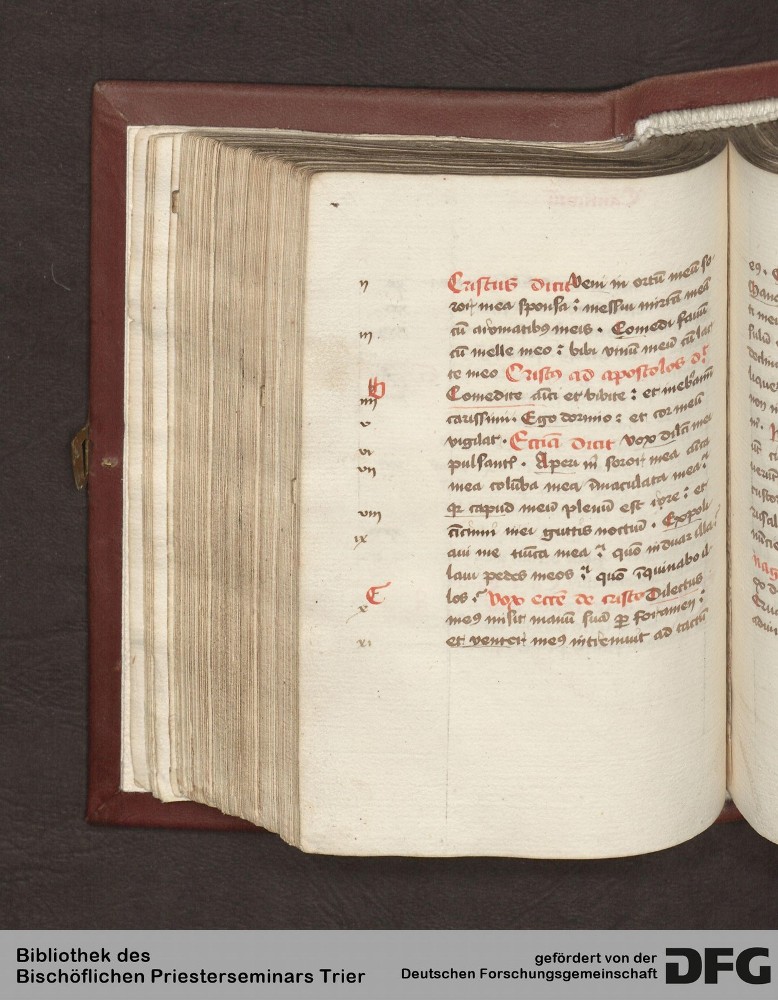 Cristus dicit Veni in ortū meū so
ror mea sponsa : messui mirrā meā
cū aromatibꝯ meis . Comedi fauū
cū melle meo : bibi vinū meū cū lac
te meo Cristꝯ ad apostolos d͛t
Comedite et bibite : et inebriam̄
carissimi . Ego dormio : et cor meū
vigilat . Ecc͛ia dicit vox dil͛ci mei
pulsant͛ . Aperi m̄ soror mea aīca
mea colūba mea īmaculata mea :
qr capud meū plenū est rore : et
cīcinni mei guttis noctiū . Expoli
aui me tunica mea : quō induar illa :
laui pedes meos : quō īquinabo il
los : Vox ecc͛e de cristo Dilectus
meꝯ misit manū suā ꝑ foramen :
et venter meꝯ intremuit ad tactū
ii
iii
B
iiii
v
vi
vii
viii
ix
C
x
xi
Bibliothek des
Bischöflichen Priesterseminars Trier
gefördert von der
Deutschen Forschungsgemeinschaft
DFG